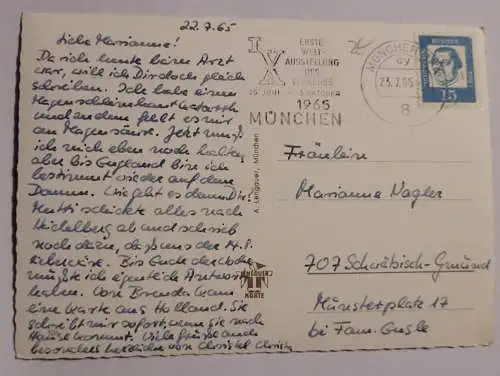 22.7.65
Liebe Marianne!
Da ich heute beim Arzt
war, will ich Dir doch gleich
schreiben. Ich habe einen
Magenschleimhautkatarrh
und zudem fehlt es mir
an Magensäure. Jetzt muß
ich mich eben noch halten,
aber bis England bin ich
bestimmt wieder auf dem
Damm. Wie geht es denn Dir?
Mutti schickte alles nach
Heidelberg ab und schrieb
noch dazu, daß uns der 4.8.
Bis Ende der Woche
müßte ich eigentlich Antwort
haben. Von Brenda kam
eine Karte aus Holland. Sie
schreibt mir sofort, wenn sie nach
Hause kommt. Viele Grüße auch
besonders herzliche von Christel
ERSTE
WELT-
AUSSTELLUNG
DES
VERKEHRS
25. JUNI - 3. OKTOBER
1965
MÜNCHEN
MÜNCHEN
23.7.65
8
15
A. Lengauer, München
Fräulein
Marianne Nagler
707 Schwäbisch-Gmünd
Münsterplatz 17
bei Fam.